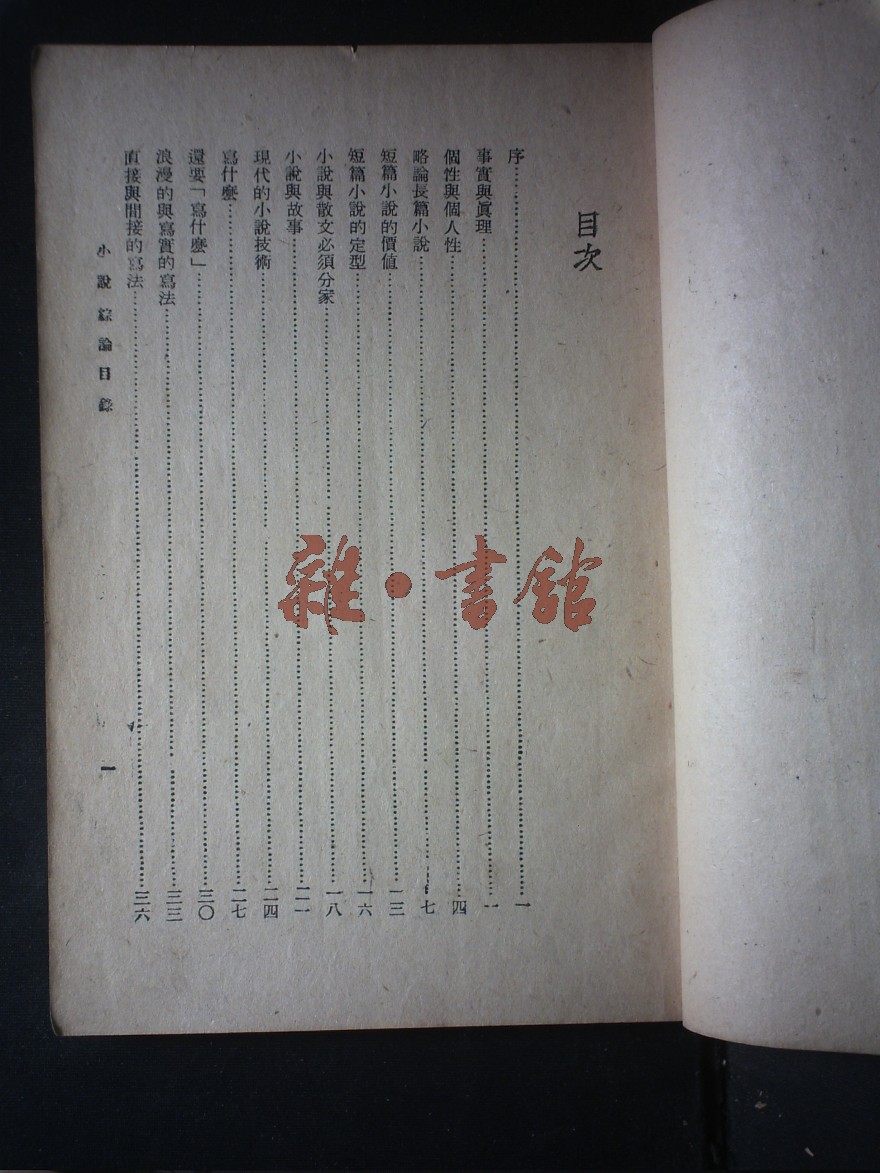 目次
序……一
事實與眞理……一
個性與個人性……四
略論長篇小說……七
短篇小說的價値……一三
短篇小說的定型……一六
小說與散文必須分家……一八
小說與故事……二一
現代的小說技術……二四
寫什麽……二七
還要「寫什麽」……三〇
浪漫的與寫實的寫法……三三
直接與間接的寫法……三六
小說綜論目錄
一
雜·書館